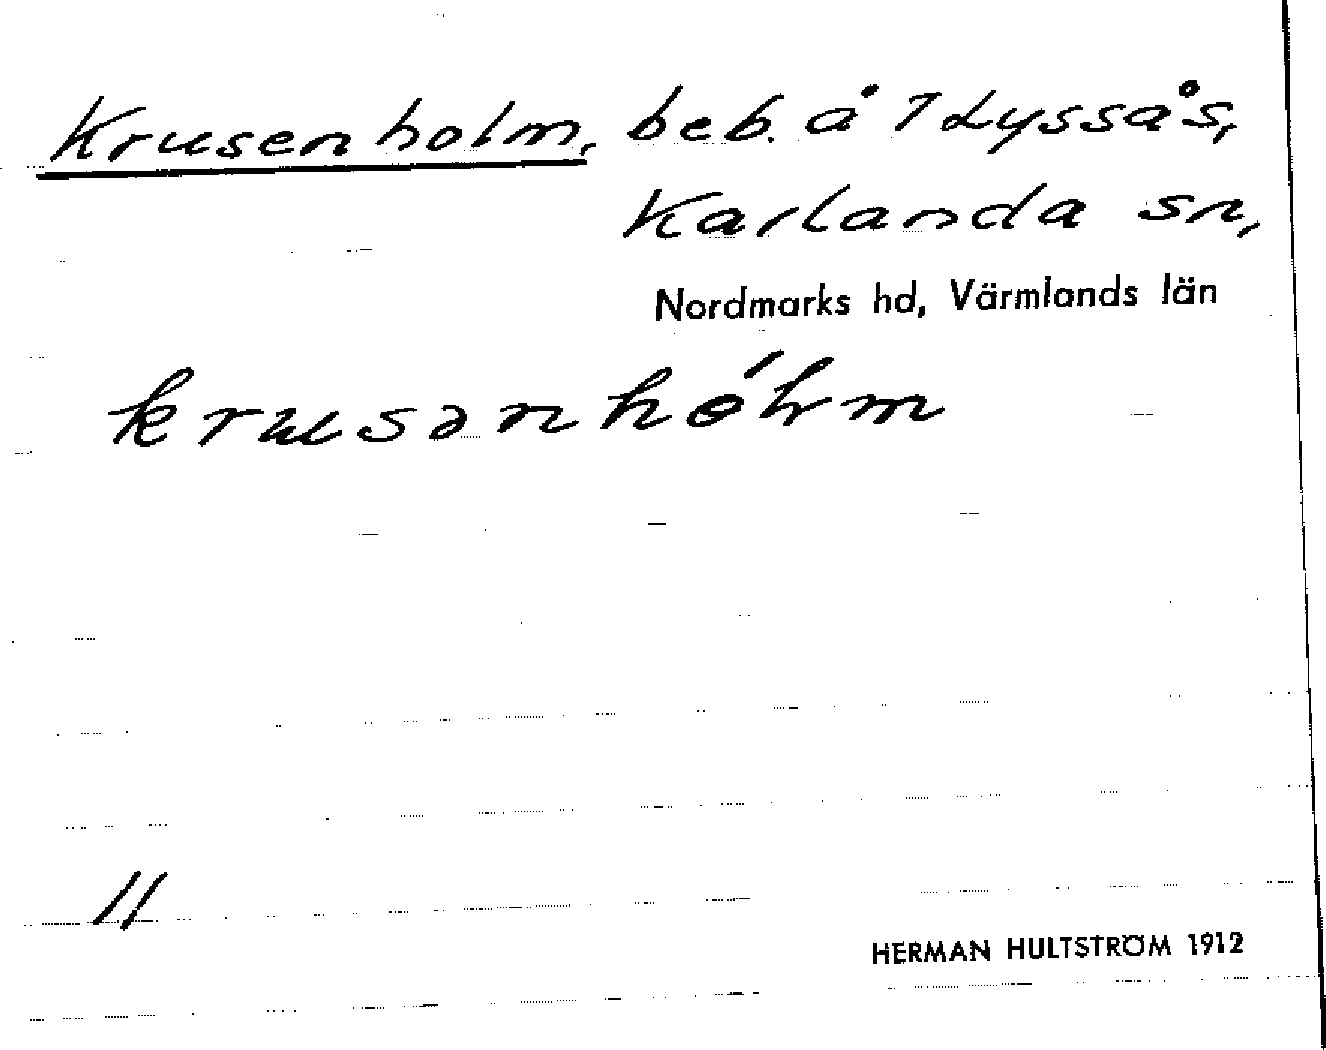 Krusenholm, beb. å 1 Lyssås,
Karlanda sn,
Nordmarks hd, Värmlands län
krusənhólm
11
HERMAN HULTSTRÖM 1912